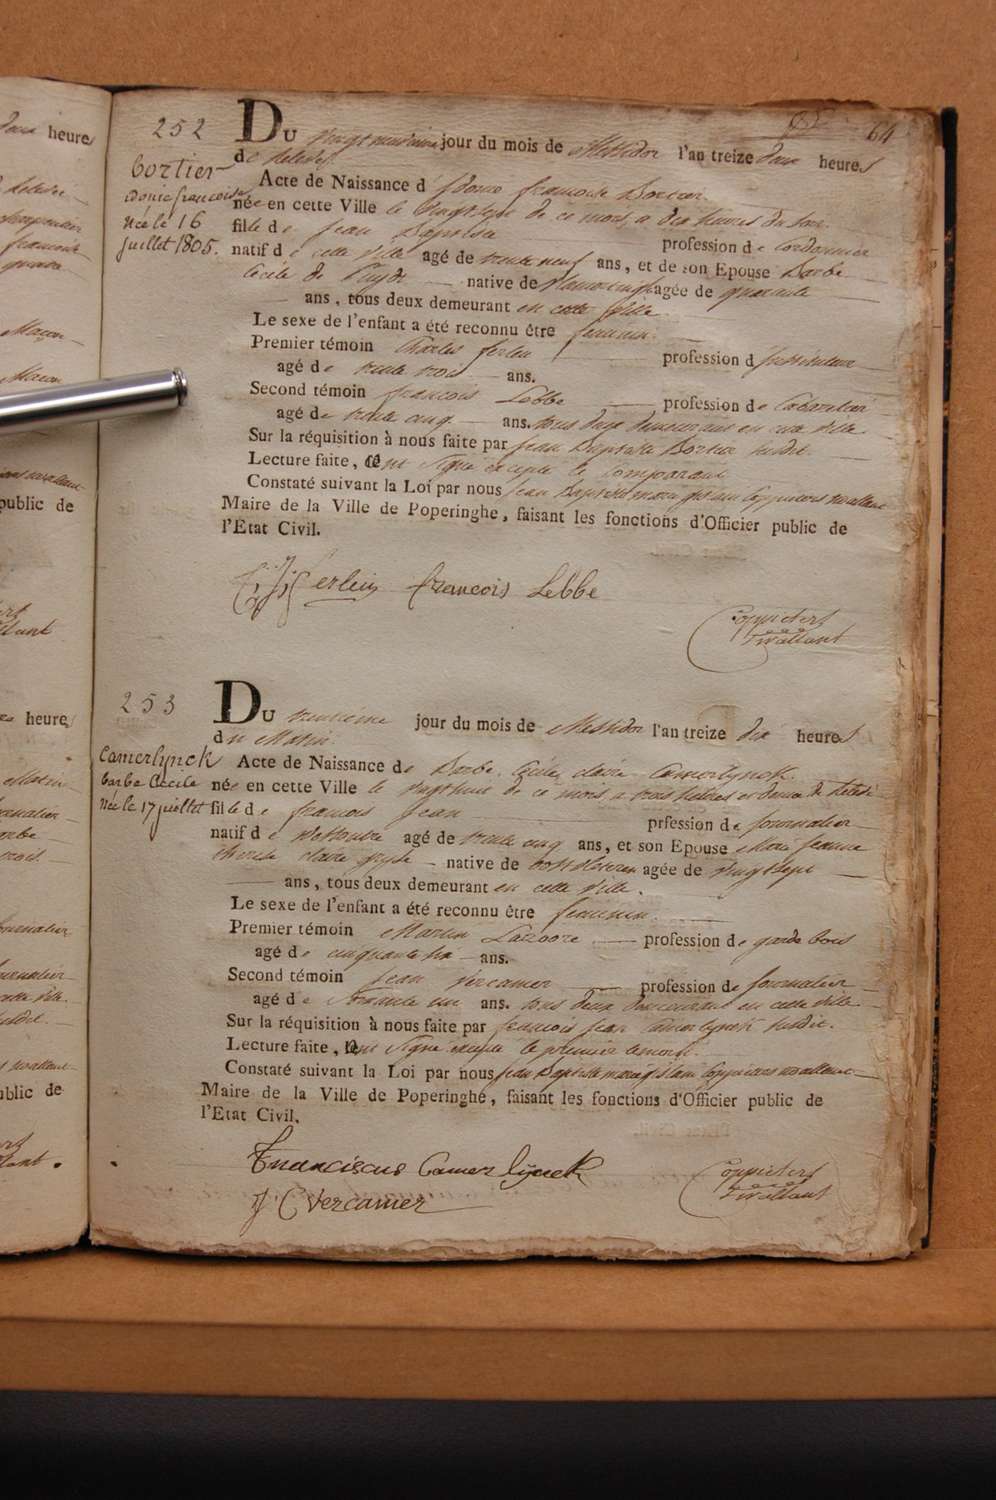 64
252
DU vingt neuvième jour du mois de Messidor l'an treize deux heures
de relevée.
Bortier
idonie françoise
née le 16
juillet 1805.
Acte de Naissance d' idonie françoise Bortier
née en cette Ville le vingt sept de ce mois, a dix heures du soir
fille de jean Baptiste profession de Cordonnier
natif de cette ville agé de trente neuf ans, et de son Epouse Barbe
Cecile de native de agée de quarante
ans, tous deux demeurant en cette Ville
Le sexe de l'enfant a été reconnu être feminin.
Premier témoin Charles ferlin profession d'instituteur
agé de trente trois ans.
Second témoin françois Lebbe profession de Cabaretier
agé de trente cinq ans. tous deux demeurans en cette ville
Sur la réquisition à nous faite par jean Baptiste Bortier susdit
Lecture faite, ont signé excepté le Comparant
Constaté suivant la Loi par nous jean Baptiste
Maire de la Ville de Poperinghe, faisant les fonctions d'Officier public de
l'Etat Civil.
ferlin françois Lebbe
Coppieters
253
DU trentieme jour du mois de Messidor l'an treize dix heures
du Matin
Camerlynck
barbe Cecile
Née le 17 juillet
Acte de Naissance de Barbe Cecile claire Camerlynck
née en cette Ville le vingt huit de ce mois a trois heures et demie de relevée
fille de françois jean prfession de journalier
natif de Westoutre agé de trente cinq ans, et son Epouse Marie jeanne
therese claire native de agée de vingt sept
ans, tous deux demeurant en cette Ville.
Le sexe de l'enfant a été reconnu être feminin.
Premier témoin Martin profession de garde bois
agé de cinquante six ans.
Second témoin jean Vercamer profession de journalier
agé de ans. tous deux demeurant en cette ville
Sur la réquisition à nous faite par francois jean Camerlynck susdit.
Lecture faite, ont signé excepté le premier temoin.
Constaté suivant la Loi par nous jean Baptiste
Maire de la Ville de Poperinghe, faisant les fonctions d'Officier public de
l'Etat Civil.
Franciscus Camerlynck
J C Vercamer
Coppieters